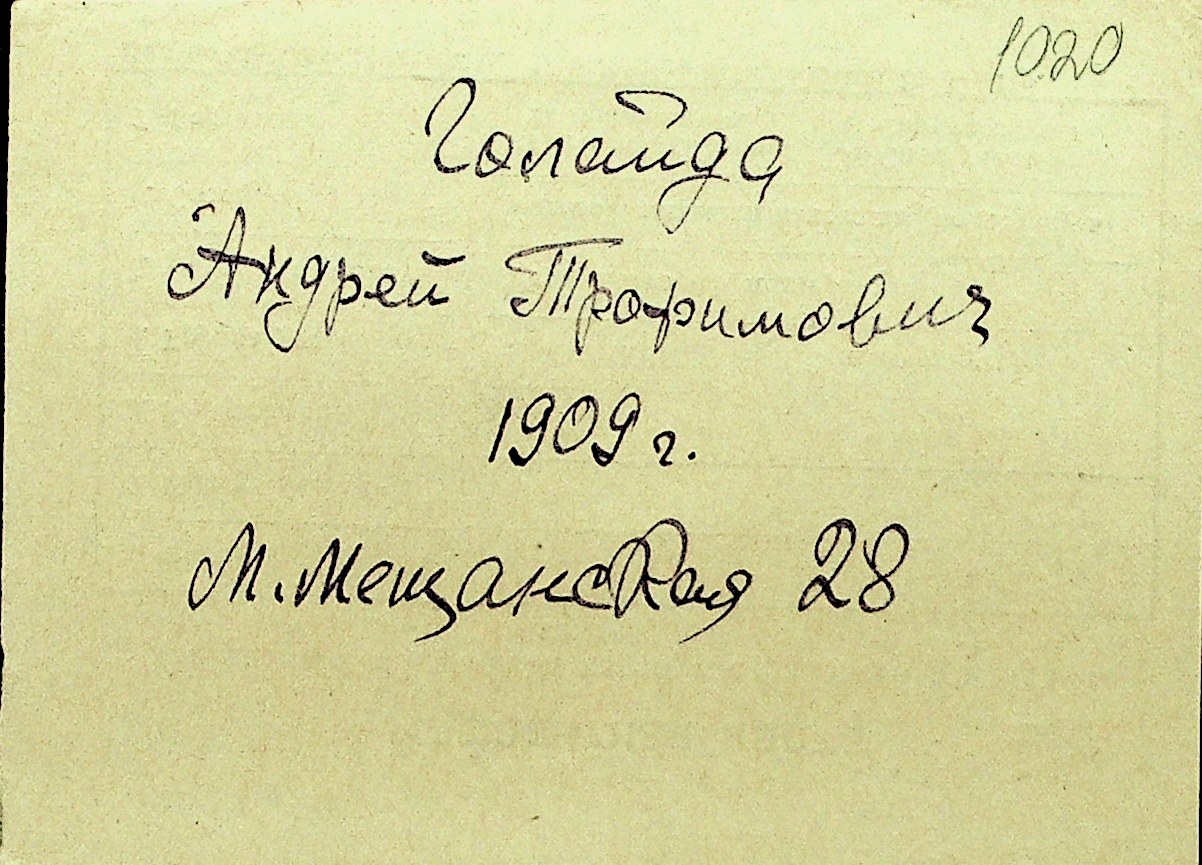 1020
Голайда
Андрей Трофимович
1909 г.
М. Мещанская 28